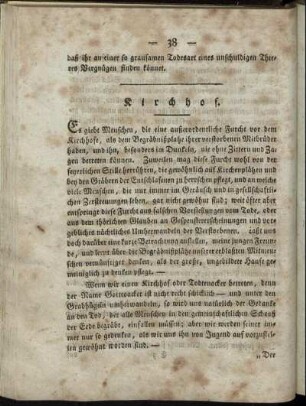 — 38 —
daß ihr an einer so grausamen Todesart eines unschuldigen Thie-
res Vergnügen finden könnet.
Kirchhof.
Es giebt Menschen, die eine außerordentliche Furcht vor dem
Kirchhofe, als dem Begräbnißplatze ihrer verstorbenen Mitbrüder
haben, und ihn, besonders im Dunckeln, nie ohne Zittern und Za-
gen betreten können. Zuweilen mag diese Furcht wohl von der
feyerlichen Stille herrühren, die gewöhnlich auf Kirchenplätzen und
bey den Gräbern der Entschlafenen zu herrschen pflegt, und an welche
viele Menschen, die nur immer im Geräusch und in gesellschaftli-
chen Zerstreuungen leben, gar nicht gewöhnt sind; weit öfter aber
entspringt diese Furcht aus falschen Vorstellungen vom Tode, oder
aus dem thörichten Glauben an Gespenstererscheinungen und dem
geblichen nächtlichen Umherwandeln der Verstorbenen. Laßt uns
doch darüber eine kurze Betrachtung anstellen, meine jungen Freun-
de, und wenn über die Begräbnißplätze unsrer entschlafnen Mitmen-
schen vernünftiger denken, als der große, ungebildete Haufe ge-
meiniglich zu denken pflegt. —
Wenn wir einen Kirchhof oder Todtenacker betreten, denn
der Name Gottesacker ist nicht recht schicklich — und unter den
Grabhügeln umherwandeln, so wird uns natürlich der Gedanke
an den Tod, der alle Menschen in den gemeinschaftlichen Schooß
der Erde begräbt, einfallen müssen; aber wir werden ihn immer
nur so denken, als wir uns ihn von Jugend auf vorzustel-
len gewöhnt worden sind. —
„Der